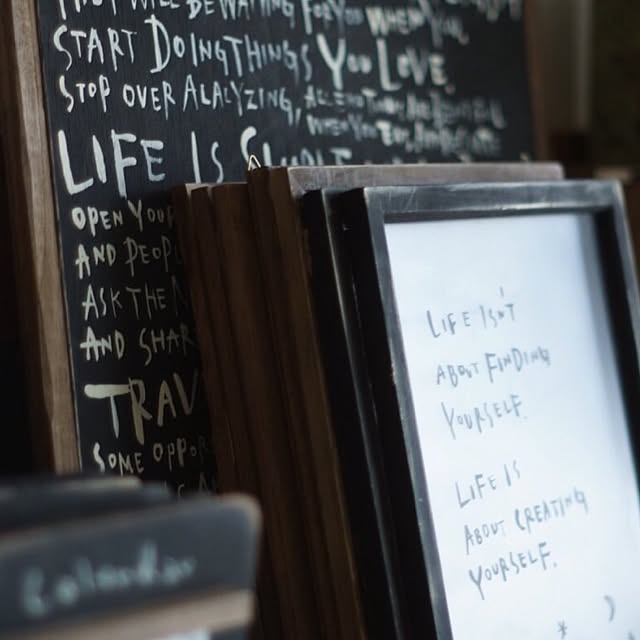 THEY WILL BE WAITING FOR YOU WHEN YOU
START DOING THINGS YOU LOVE.
STOP OVER ALALYZING,
LIFE IS SIMPLE
WHEN YOU EAT, APPRECIATE
OPEN YOUR
AND PEOPL
ASK THE N
AND SHAR
TRAV
SOME OPPOR
LIFE ISN'T
ABOUT FINDING
YOURSELF.
LIFE IS
ABOUT CREATING
YOURSELF.
Calendar